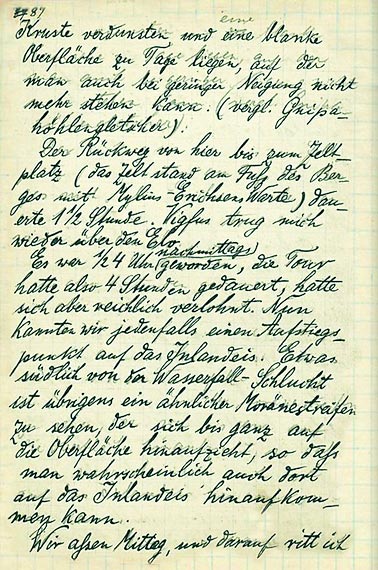 87
eine
Kruste verdunsten und eine blanke
Oberfläche zu Tage liegen, auf der
man auch bei geringer Neigung nicht
mehr stehen kann. (vergl. Gnipa-
höhlengletscher).
Der Rückweg von hier bis zum Zelt-
platz (das Zelt stand am Fuß des Ber-
ges mit Mylius Erichsens Warte) dau-
erte 1 1/2 Stunde. Vigfus trug mich
wieder über den Elv.
nachmittags
Es war 1/2 4 Uhr geworden, die Tour
hatte also 4 Stunden gedauert, hatte
sich aber reichlich verlohnt. Nun
kannten wir jedenfalls einen Aufstiegs-
punkt auf das Inlandeis. Etwas
südlich von der Wasserfall-Schlucht
ist übrigens ein ähnlicher Moränestreifen
zu sehen, der sich bis ganz auf
die Oberfläche hinaufzieht, so daß
man wahrscheinlich auch dort
auf das Inlandeis hinaufkom-
men kann.
Wir assen Mittag, und darauf ritt ich